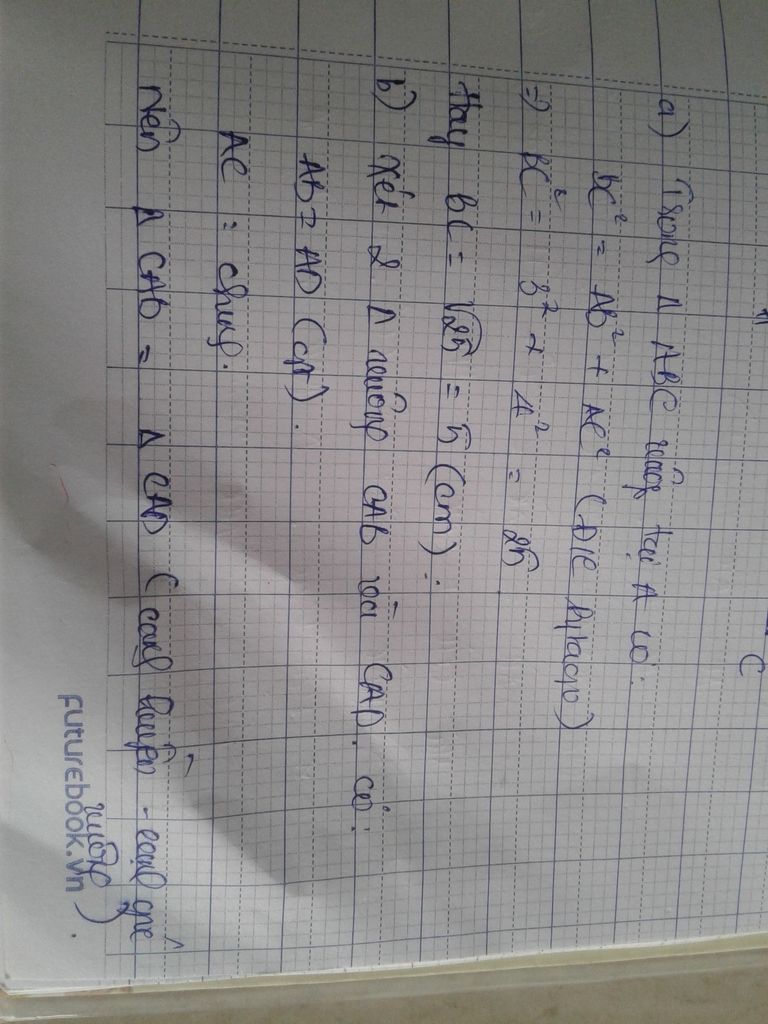 C
a) Trong Δ ABC vuông tại A có:
BC² = AB² + AC² (Đlí Pytago)
=) BC² = 3² + 4² = 25
Hay BC = √25 = 5 (cm).
b) Xét 2 Δ vuông CAB và CAD. có:
AB = AD (gt).
AC : chung.
Nên Δ CAB = Δ CAD (cạnh huyền - cạnh góc
vuông).
Futurebook.vn